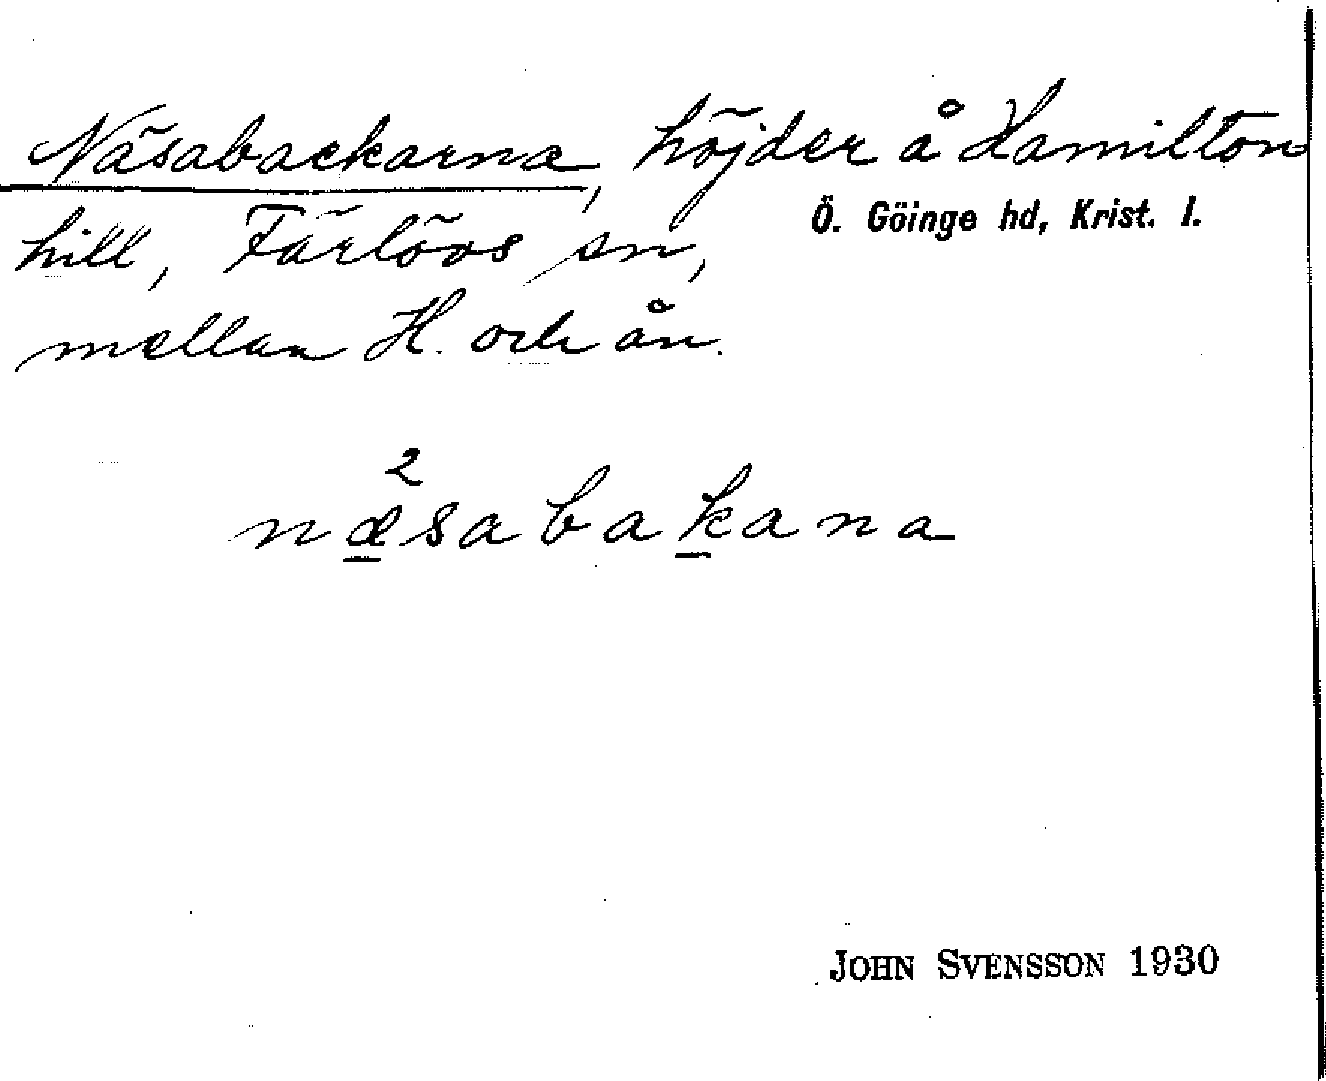 Näsabackarna, höjder å Hamilton
Ö. Göinge hd, Krist. l.
hill, Färlövs sn,
mellan H. och ån.
2
næsabakana
JOHN SVENSSON 1930